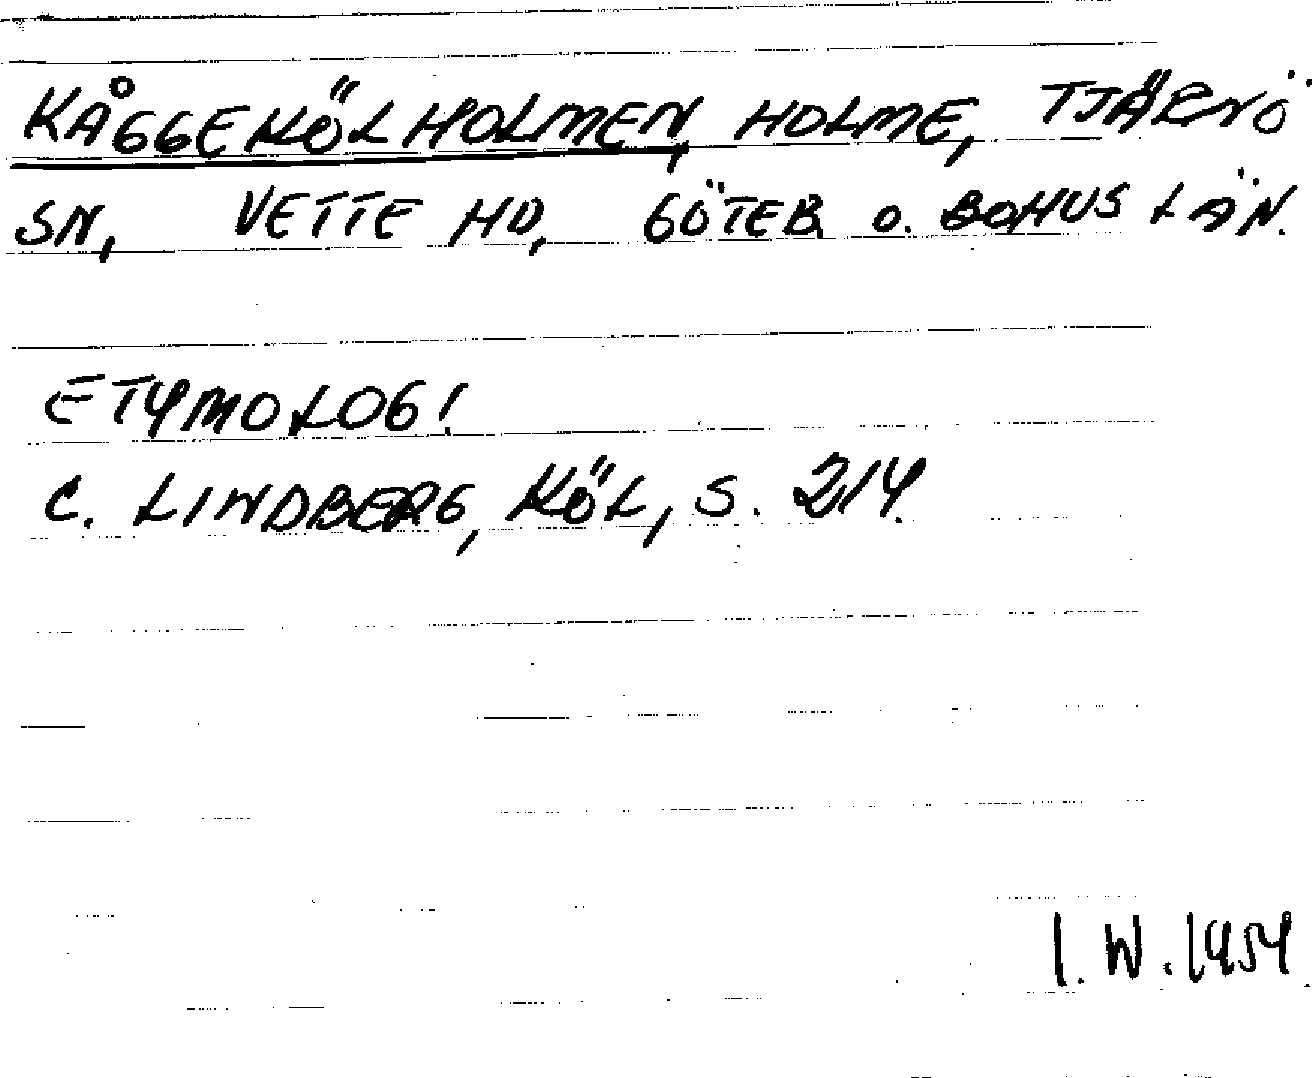 KÅGGEKÖLHOLMEN, HOLME, TJÄRNÖ
SN, VETTE HD, GÖTEB. O. BOHUS LÄN.
ETYMOLOGI
C. LINDBERG, KÖL, S. 214.
I.W.1954.